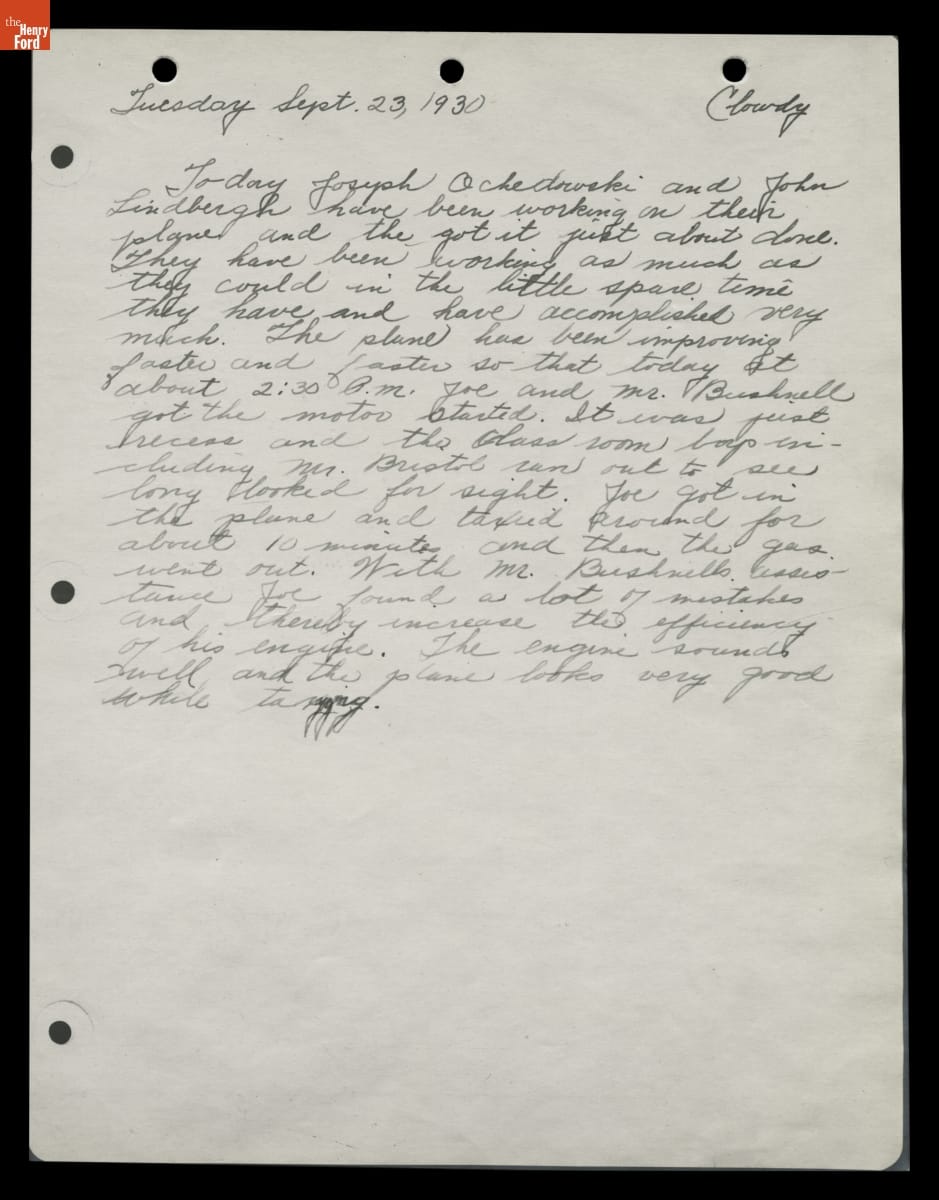 the
Henry
Ford
Tuesday Sept. 23, 1930 Clowdy
Today Joseph Ochedowski and John
Lindbergh have been working on their
plane and the got it just about done.
They have been working as much as
they could in the little spare time
they have and have accomplished very
much. The plane has been improving
faster and faster so that today at
about 2:30 P.M. Joe and Mr. Bushnell
got the motor started. It was just
recess and the Class room boys in-
cluding Mr. Bristol ran out to see
long looked for sight. Joe got in
the plane and taxied around for
about 10 minutes and then the gas
went out. With Mr. Bushnells assis-
tance Joe found a lot of mistakes
and thereby increase the efficiency
of his engine. The engine sounds
swell and the plane looks very good
while